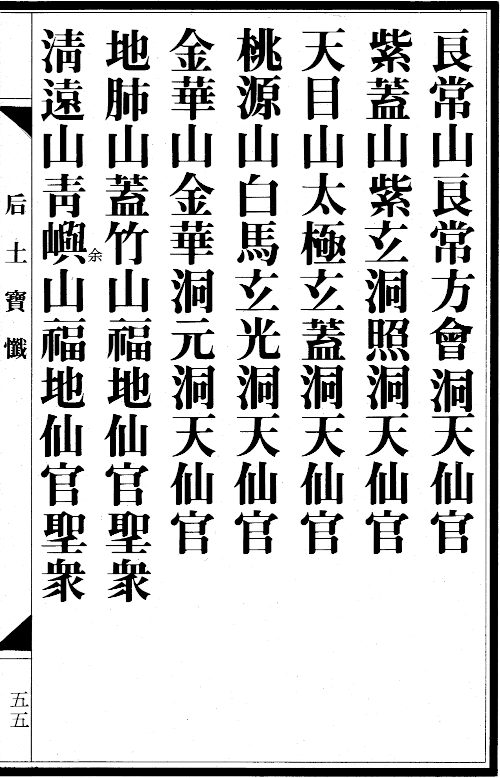 良常山良常方會洞天仙官
紫蓋山紫玄洞照洞天仙官
天目山太極玄蓋洞天仙官
桃源山白馬玄光洞天仙官
金華山金華洞元洞天仙官
地肺山蓋竹山福地仙官聖衆
清遠山青嶼余山福地仙官聖衆
后土寶懺
五五